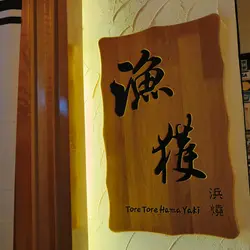 漁獲
浜燒
Tore Tore Hama Yaki